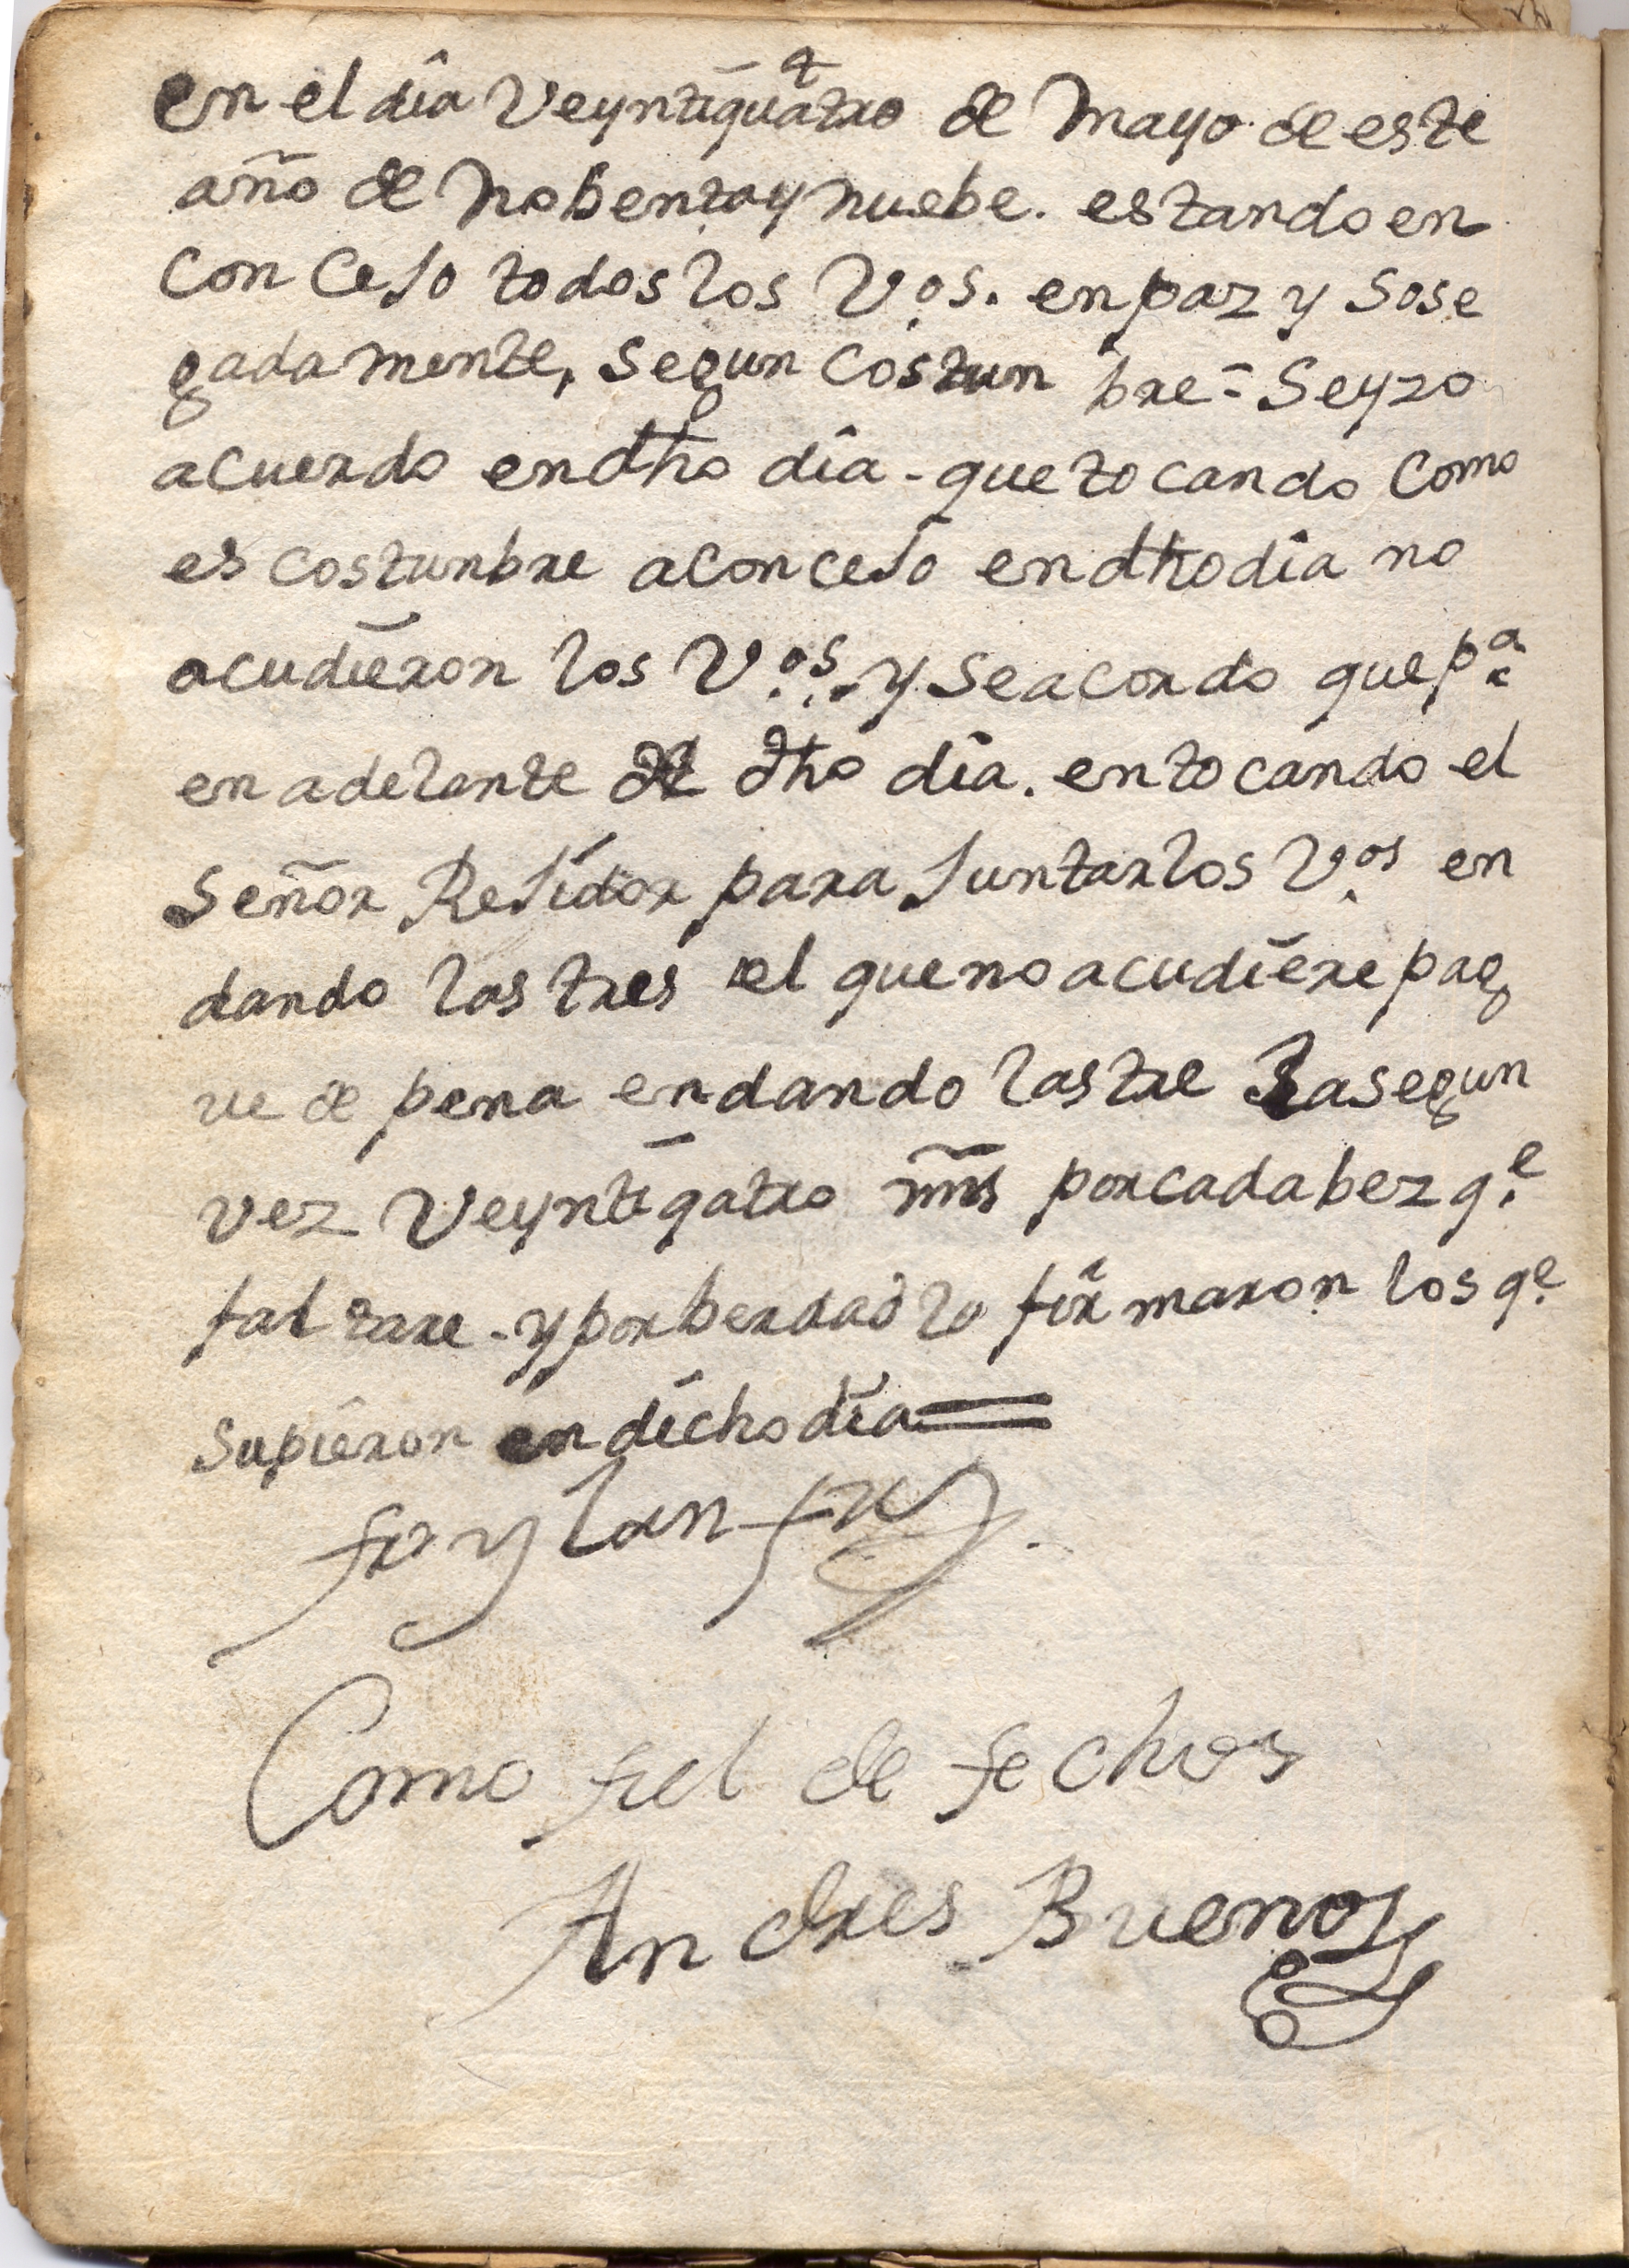 en el dia Veyntiquatro de Mayo de este
año de Nobenta y nuebe. estando en
Con CeJo todos los V.os. en paz y Sose
gadamente, Segun Costun bre = Seyzo
acuerdo en dho dia - que tocando Como
es costunbre a conceJo en dho dia no
acudieron los V.os. y se acordo que p.a
en adelante de dho dia. en tocando el
Señor ReJidor para Juntar los V.os en
dando las tres el que no acudiere pag
ue de pena en dando las tre la segun
vez Veyntiqatro mrs por cada bez q.e
faltare - y por berdad lo firmaron los q.e
supieron en dicho dia =
Como fiel de fechos
Andres Bueno